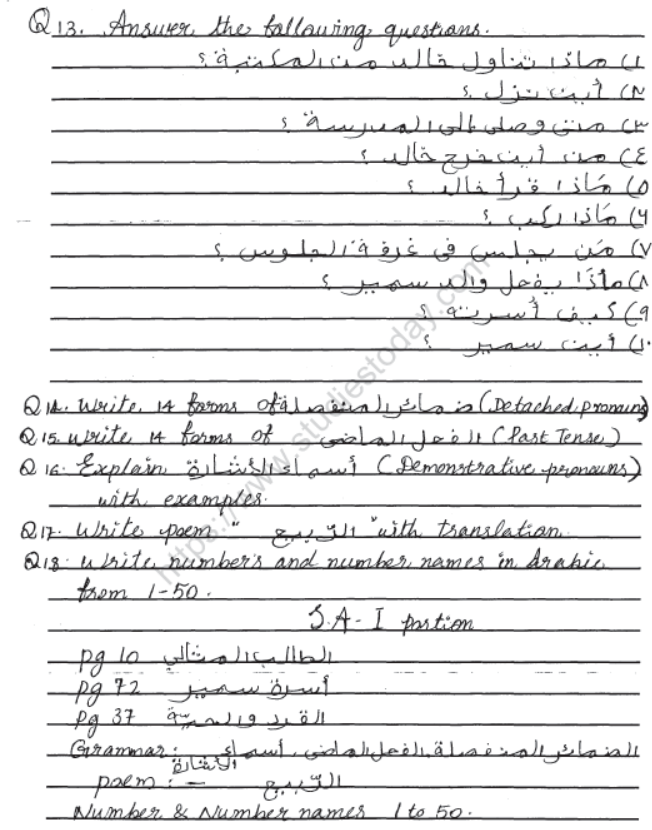 Q13. Answer the following questions.
١) ماذا تناول خالد من المكتبة ؟
٢) أين نزل ؟
٣) متى وصل الى المدرسة ؟
٤) من أين خرج خالد ؟
٥) مَاذا قرأ خالد ؟
٦) مَاذا ركب ؟
٧) مَن يجلس فى غرفة الجلوس ؟
٨) مَاذَا يفعل والد سمير ؟
٩) كيف أُسرته ؟
١٠) أين سمير ؟
Q14. Write 14 forms of ضمائر المنفصلة (Detached pronouns)
Q15. Write 14 forms of الفعل الماضى (Past Tense)
Q16. Explain أسماء الأشارة (Demonstrative pronouns)
with examples.
Q17. Write poem " الرّبيع " with translation.
Q18. Write numbers and number names in Arabic
from 1-50.
S.A - I portion
pg 10 الطالب المثالي
pg 72 أسرة سمير
pg 37 القرد والحيّة
Grammar: الضمائر المنفصلة, الفعل الماضى, أسماء
الأشارة
poem : - الرّبيع
Number & Number names 1 to 50.
https://www.studiestoday.com